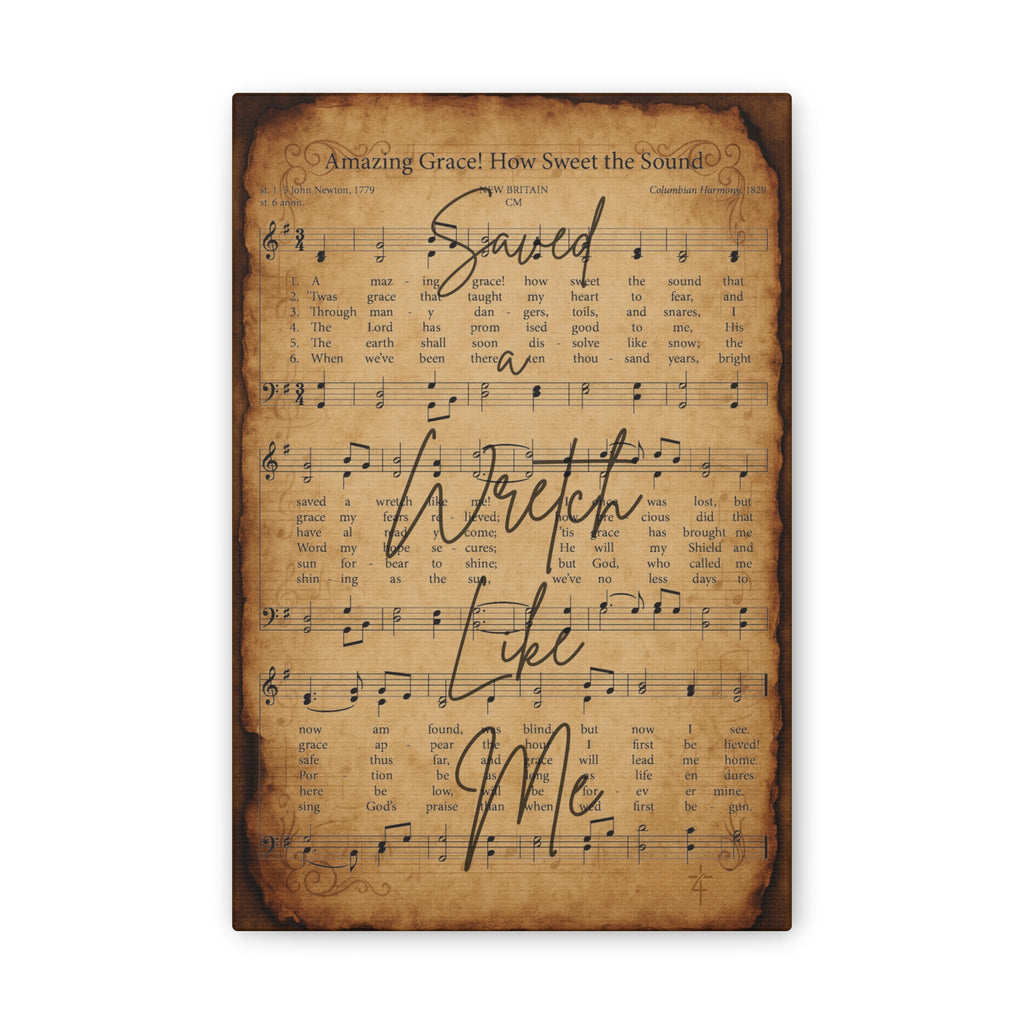 Amazing Grace! How Sweet the Sound
st. 1-5 John Newton, 1779
NEW BRITAIN
Columbian Harmony, 1829
st. 6 anon.
CM
Saved
1. A maz - ing grace! how sweet the sound that
2. 'Twas grace that taught my heart to fear, and
3. Through man - y dan - gers, toils, and snares, I
4. The Lord has prom ised good to me, His
5. The earth shall soon dis - solve like snow; the
6. When we've been there ten thou - sand years, bright
a
Wretch
saved a wretch like me! I once was lost, but
grace my fears re lieved; how pre cious did that
have al read y come; 'tis grace has brought me
Word my hope se - cures; He will my Shield and
sun for - bear to shine; but God, who called me
shin - ing as the sun, we've no less days to
Like
now am found, was blind but now I see.
grace ap - pear the hour I first be lieved!
safe thus far, and grace will lead me home.
Por tion be as long as life en dures.
here be low, will be for - ev er mine.
sing God's praise than when wed first be - gun.
Me